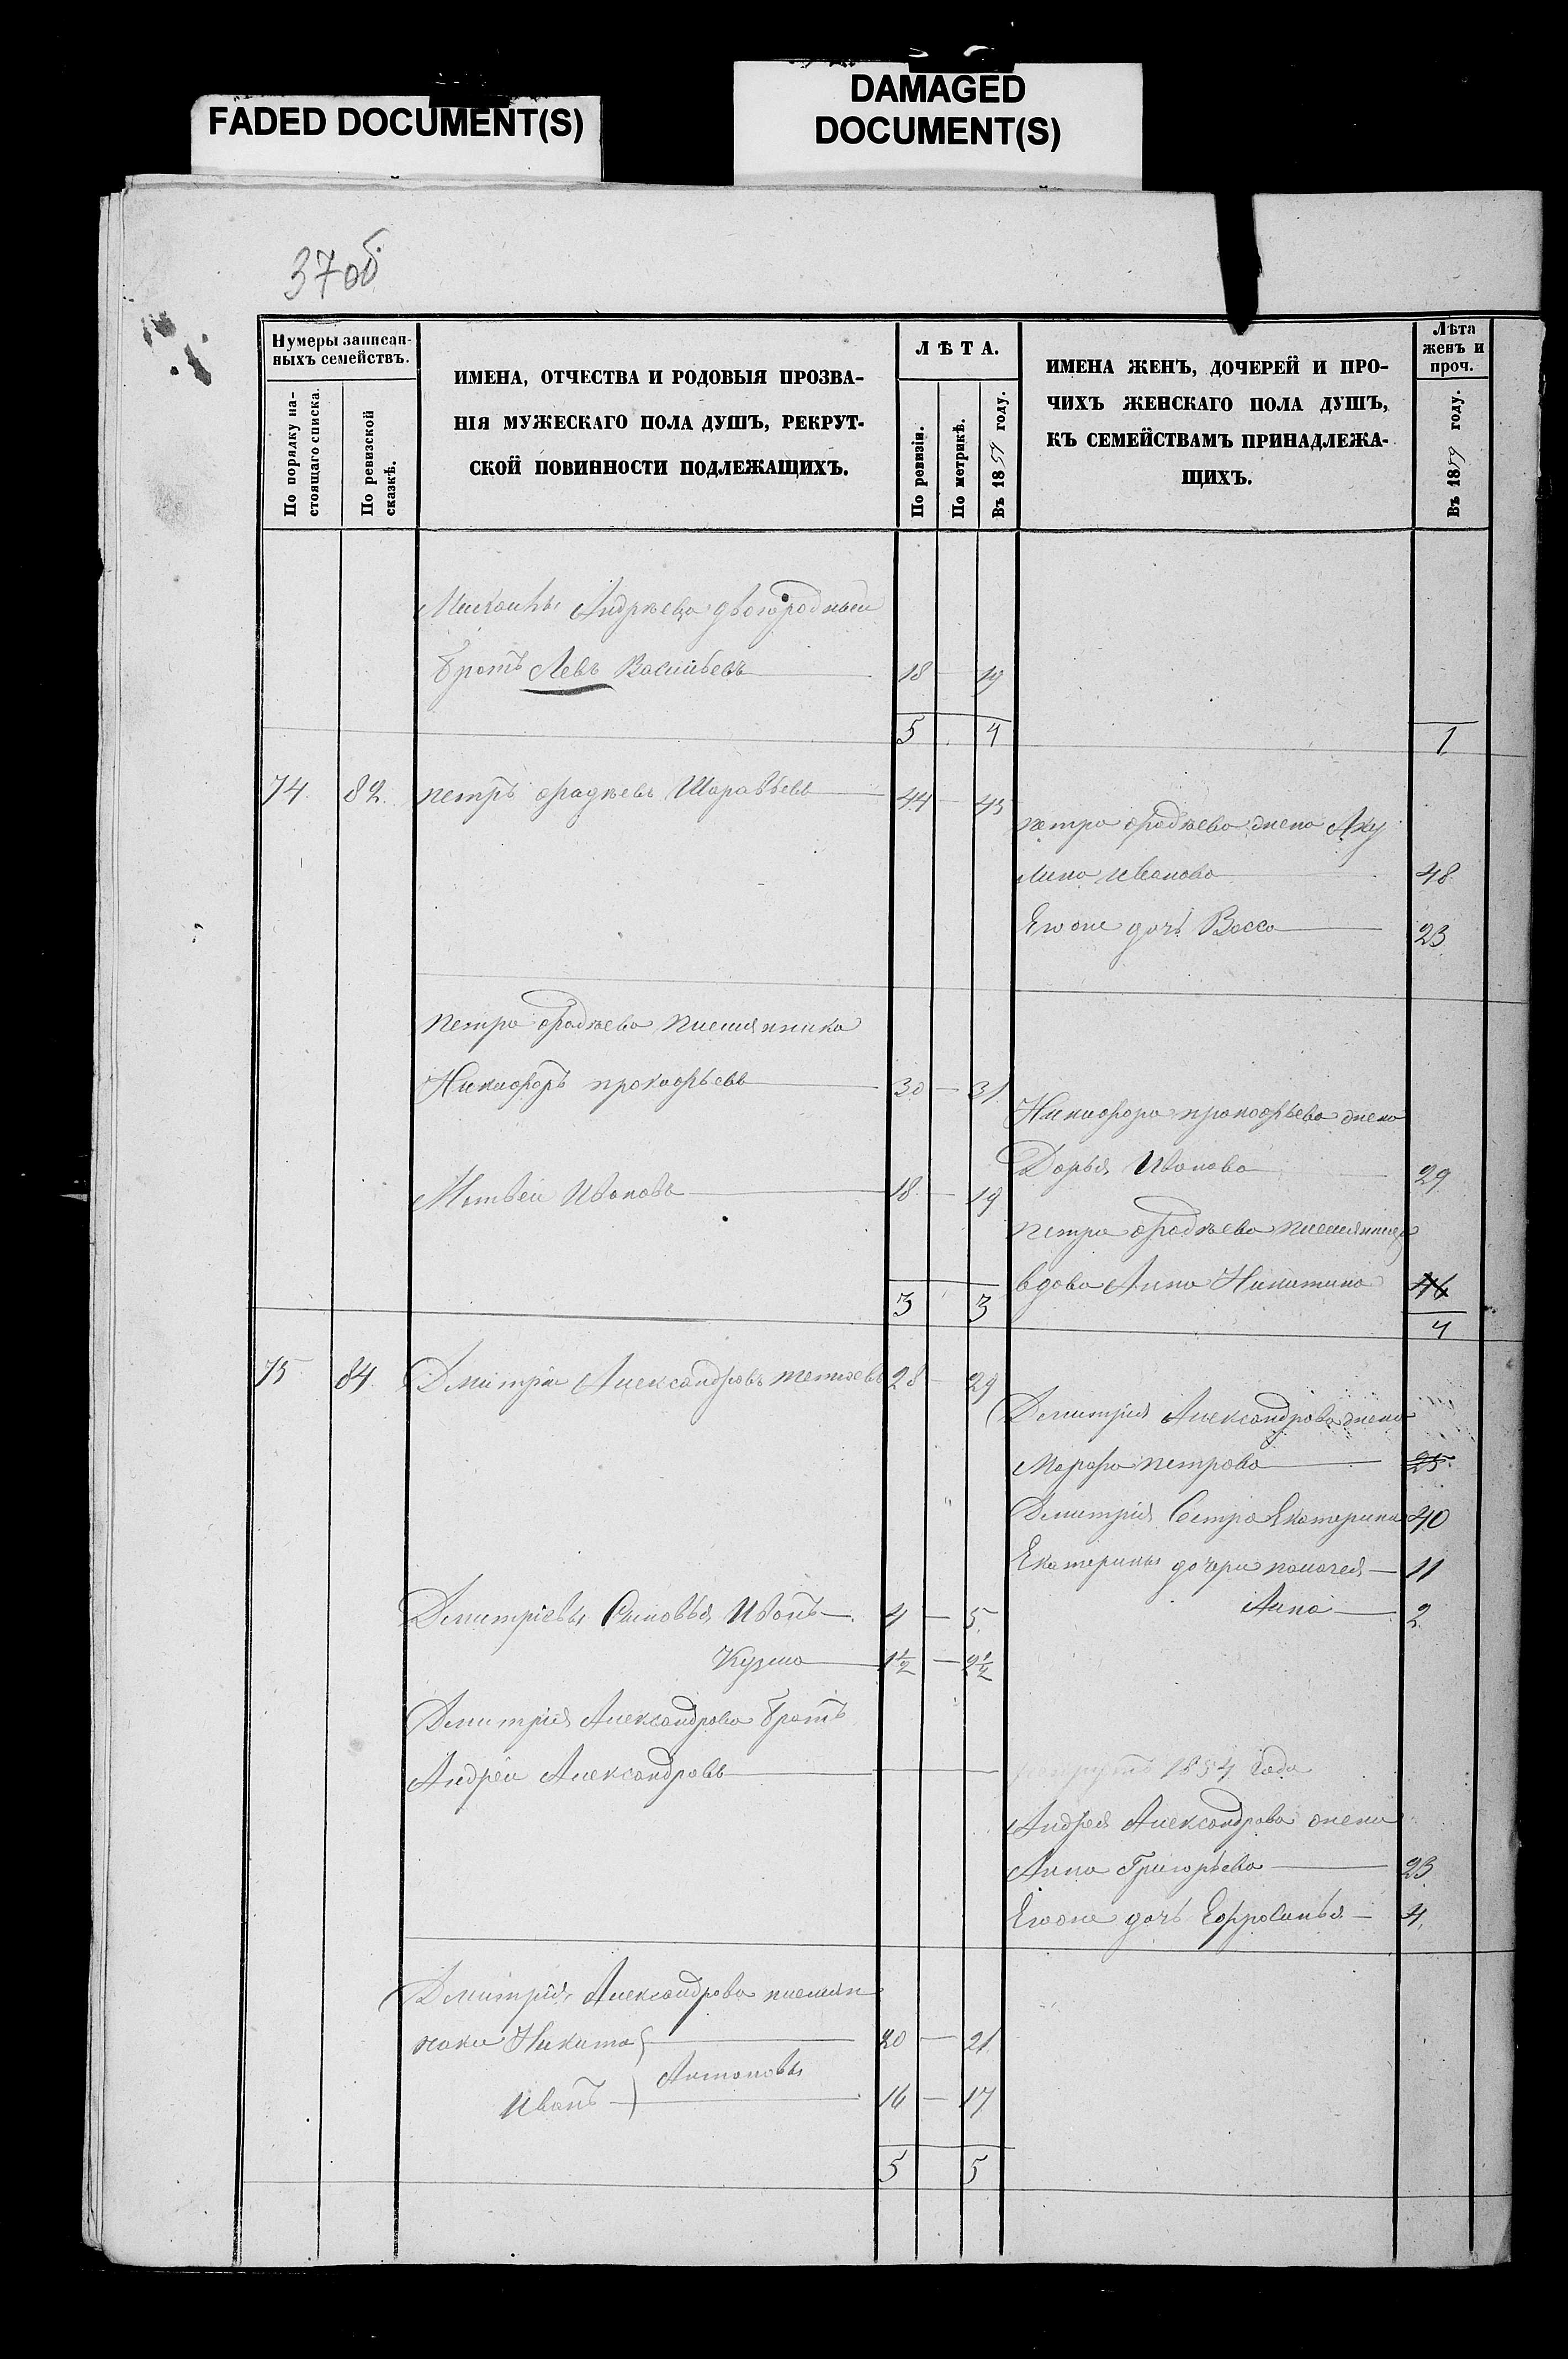 FADED DOCUMENT(S)
DAMAGED
DOCUMENT(S)
37об
Нумеры записан-
ныхъ семействъ.
По порядку на-
стоящаго списка.
По ревизской
сказкѣ.
ИМЕНА, ОТЧЕСТВА И РОДОВЫЯ ПРОЗВА-
НІЯ МУЖЕСКАГО ПОЛА ДУШЪ, РЕКРУТ-
СКОЙ ПОВИННОСТИ ПОДЛЕЖАЩИХЪ.
ЛѢТА.
По ревизіи.
По метрикѣ.
Въ 1859 году.
ИМЕНА ЖЕНЪ, ДОЧЕРЕЙ И ПРО-
ЧИХЪ ЖЕНСКАГО ПОЛА ДУШЪ,
КЪ СЕМЕЙСТВАМЪ ПРИНАДЛЕЖА-
ЩИХЪ.
Лѣта
женъ и
проч.
Въ 1859 году.
Андрѣева двоюродный
братъ Левъ Васильевъ 18 19
5 4 1
74 82 петръ фадѣевъ 44 45
петра фадѣева жена Аку
лина иванова 48
Его же дочь Васса 23
петра фадѣева племянника
Никифоръ прокофьевъ 30 31
Никифора прокофьева жена
Дарья Иванова 29
Матвѣй Ивановъ 18 19
петра фадѣева
вдова Анна Никитина 46
3 3 4
75 84 Дмитрій Александровъ 28 29
Дмитрія Александрова жена
Марфа петрова 25
Дмитрія Сестра Екатерина 40
Екатерины дочери 11
Анна 2
Дмитріевы Сыновья Иванъ 4 5
Кузма 1½ 2½
Дмитрія Александрова братъ
Андрей Александровъ
1854 года
Андрея Александрова жена
Анна Григорьева 23
Его же дочь Ефросинья 4
Дмитрія Александрова племян
ники Никита 20 21
Антоновы
Иванъ 16 17
5 5